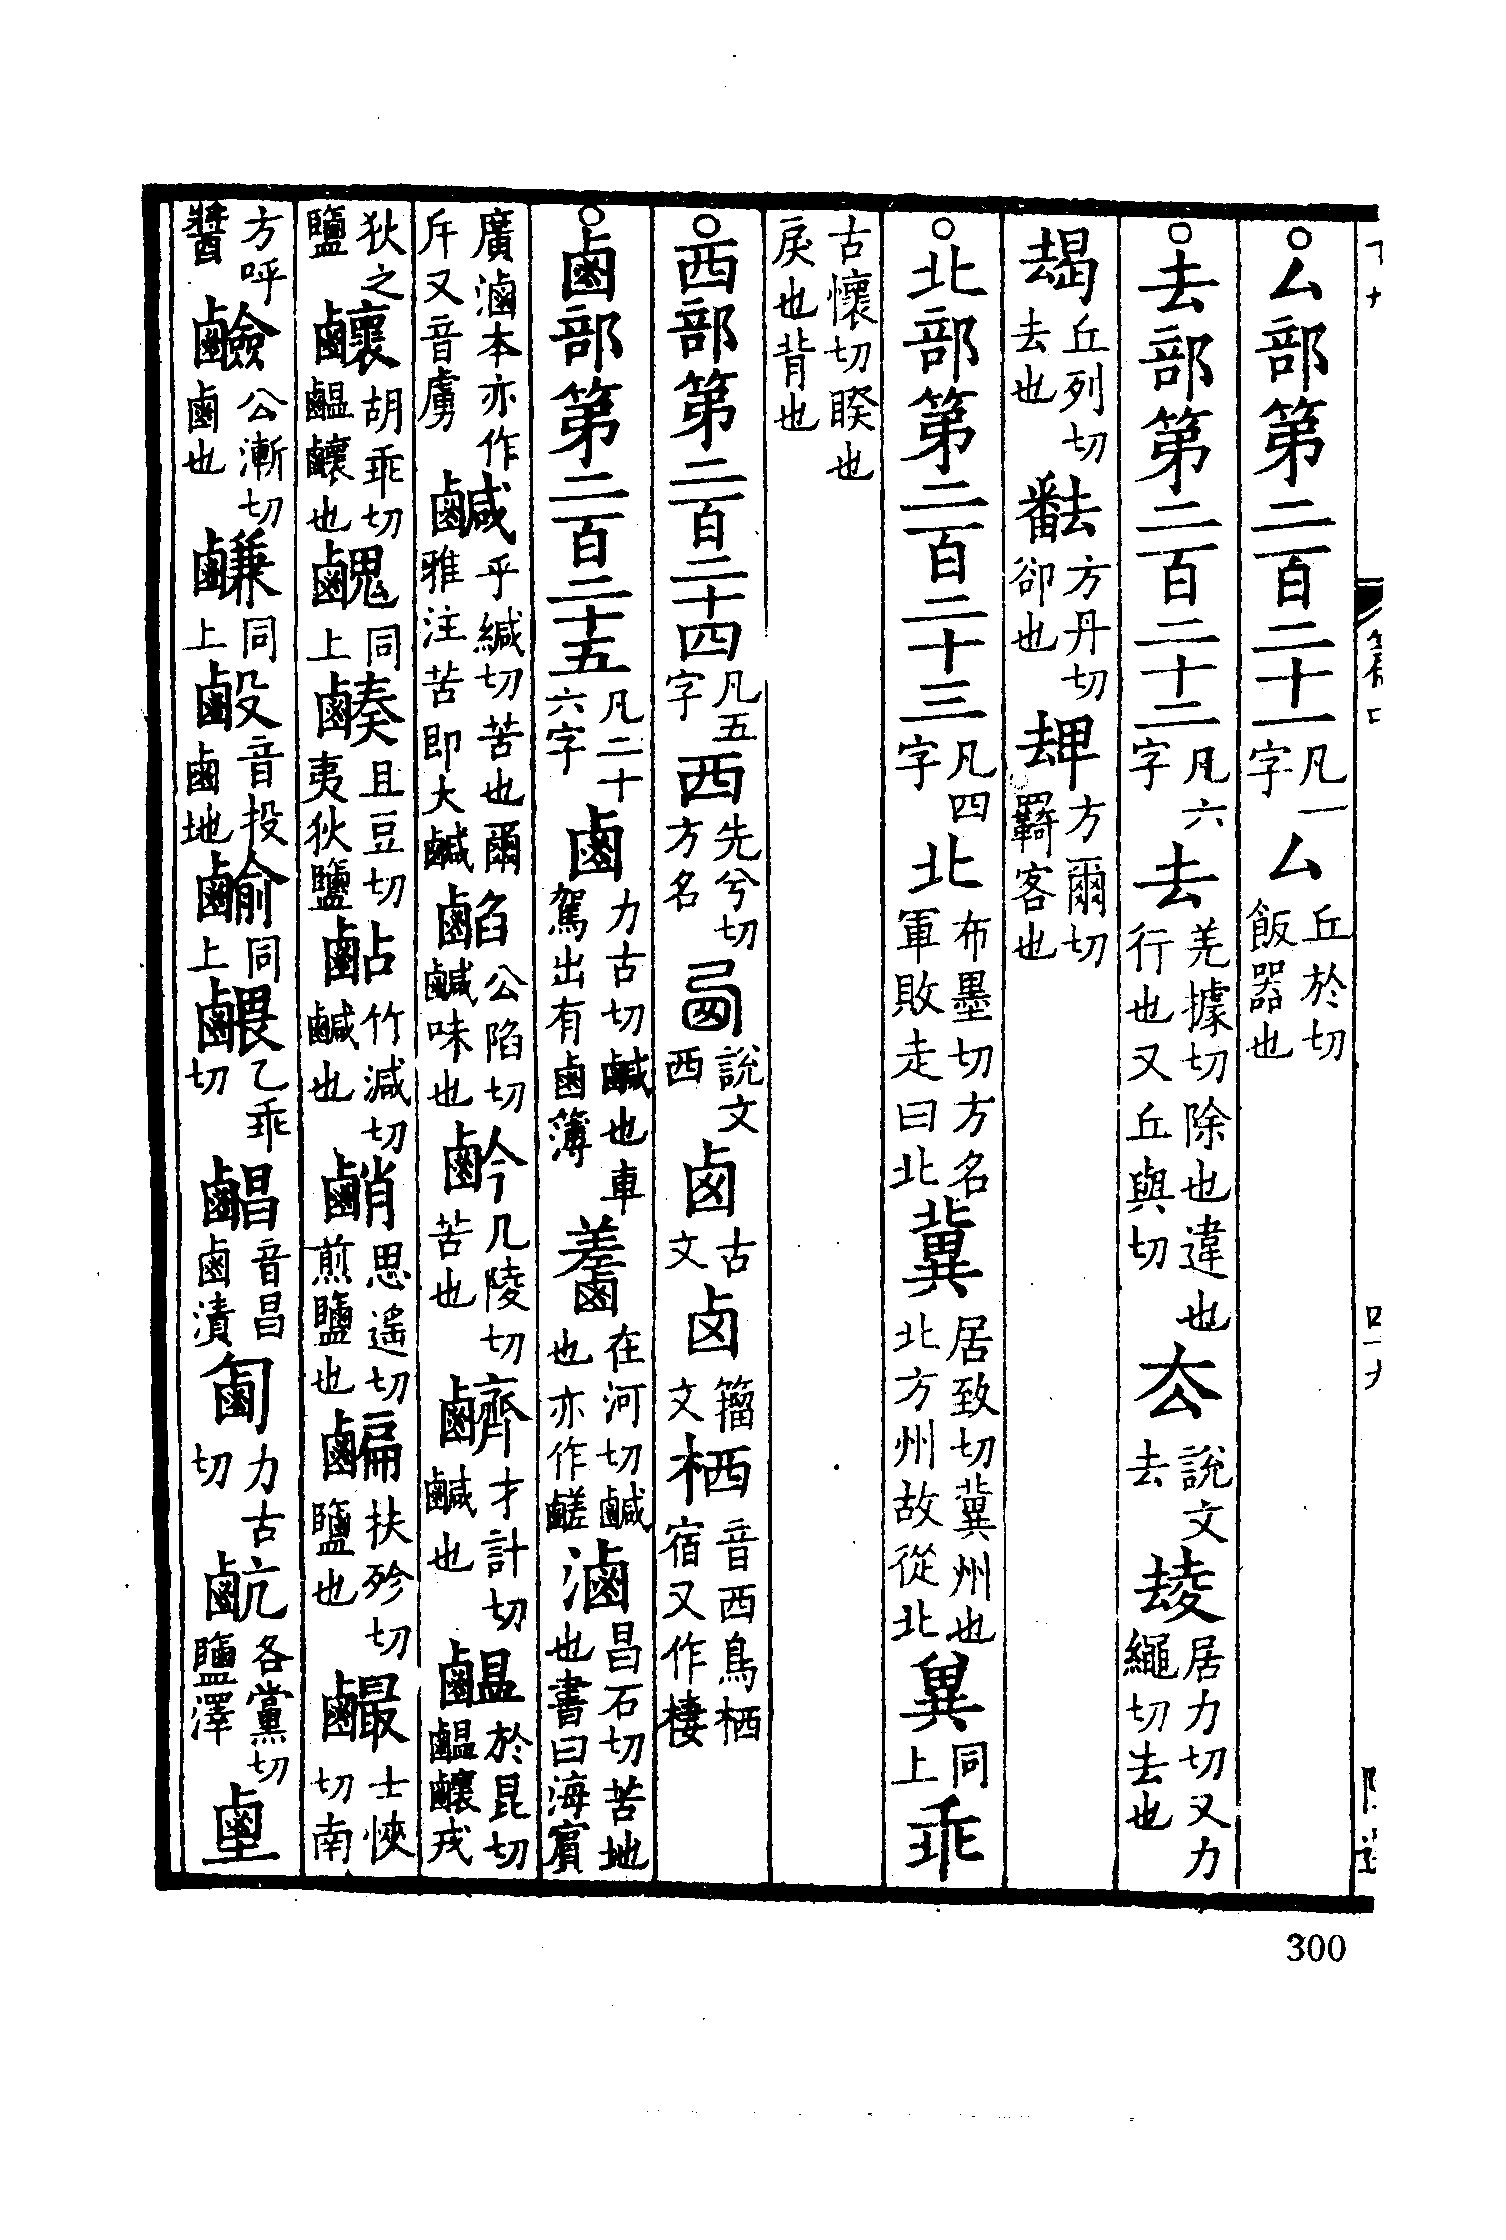 ○厶部第二百二十一凡一字 厶丘於切飯器也
○去部第二百二十二凡六字 去羌據切除也違也行也又丘與切 厺說文去 㚇居力切又力繩切去也
朅丘列切去也 𠫸方丹切卻也 𠫵方爾切羇客也
○北部第二百二十三凡四字 北布墨切方名軍敗走曰北 冀居致切冀州也北方州故從北 兾同上 乖
古懷切睽也戾也背也
○西部第二百二十四凡五字 西先兮切方名 㢴說文西 卥古文 卤籀文 栖音西鳥栖宿又作棲
○鹵部第二百二十五凡二十六字 鹵力古切鹹也車駕出有鹵簿 𪉹在河切鹹也亦作䴾 滷昌石切苦地也書曰海濱
廣滷本亦作斥又音虜 鹹乎緘切苦也爾雅注苦即大鹹 䱤公陷切鹹味也 䴴几陵切苦也 䶒才計切鹹也 𪉸於昆切𪉸䴶戎
狄之鹽 䴶胡乖切𪉸䴶也 䴷同上 𪉮且豆切夷狄鹽 䴲竹減切鹹也 𪉩思遙切煎鹽也 𪉱扶殄切鹽也 𪉷士俠切南
方呼醬 鹼公漸切鹵也 鹻同上 𪉗音投鹵地 𪉰同上 𪉲乙乖切 𪉨音昌鹵漬 𪉖力古切 䴚各黨切鹽澤 塷
300